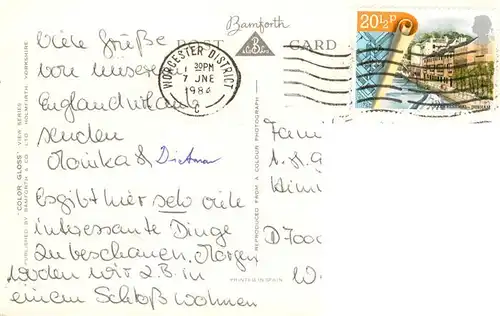 Bamforth
POST CARD
Viele Grüße
von unserem
Englandurlaub
senden
Monika & Dietmar
Es gibt hier sehr viele
interessante Dinge
zu beschauen. Morgen
werden wir z.B. in
einem Schloß wohnen
"COLOR GLOSS" VIEW SERIES
PUBLISHED BY BAMFORTH & CO. LTD. HOLMFIRTH, YORKSHIRE
REPRODUCED FROM A COLOUR PHOTOGRAPH
PRINTED IN SPAIN
WORCESTER DISTRICT
30PM
7 JNE
1984
C
20½P
Fami
D7000
W